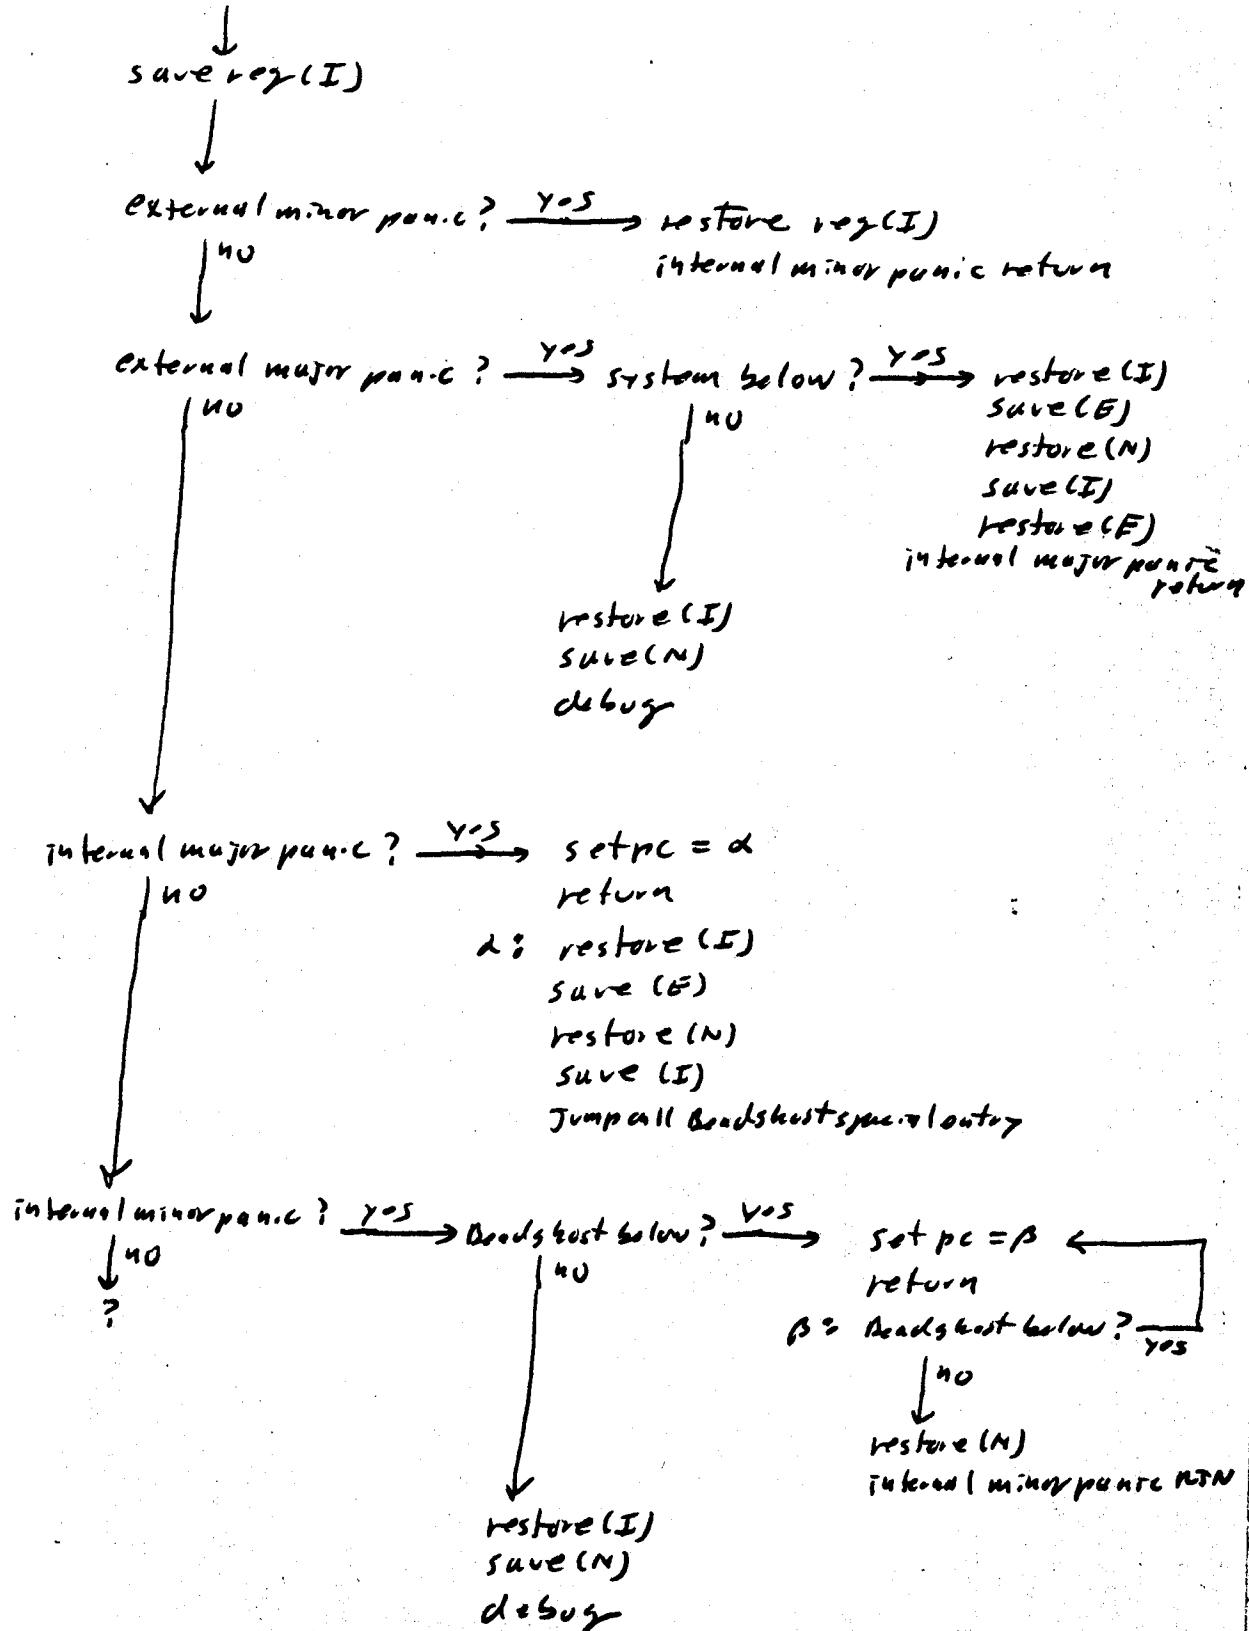 save reg(I)
external minor panic? yes restore reg(I)
no internal minor panic return
external major panic? yes system below? yes restore(I)
no no save(E)
restore(N)
save(I)
restore(E)
internal major panic
return
restore(I)
save(N)
debug
internal major panic? yes set pc = α
no return
α: restore(I)
save(E)
restore(N)
save(I)
Jump call Beadsghost special entry
internal minor panic? yes Beadsghost below? yes set pc = β
no no return
? β: Beadsghost below? yes
no
restore(N)
internal minor panic RTN
restore(I)
save(N)
debug